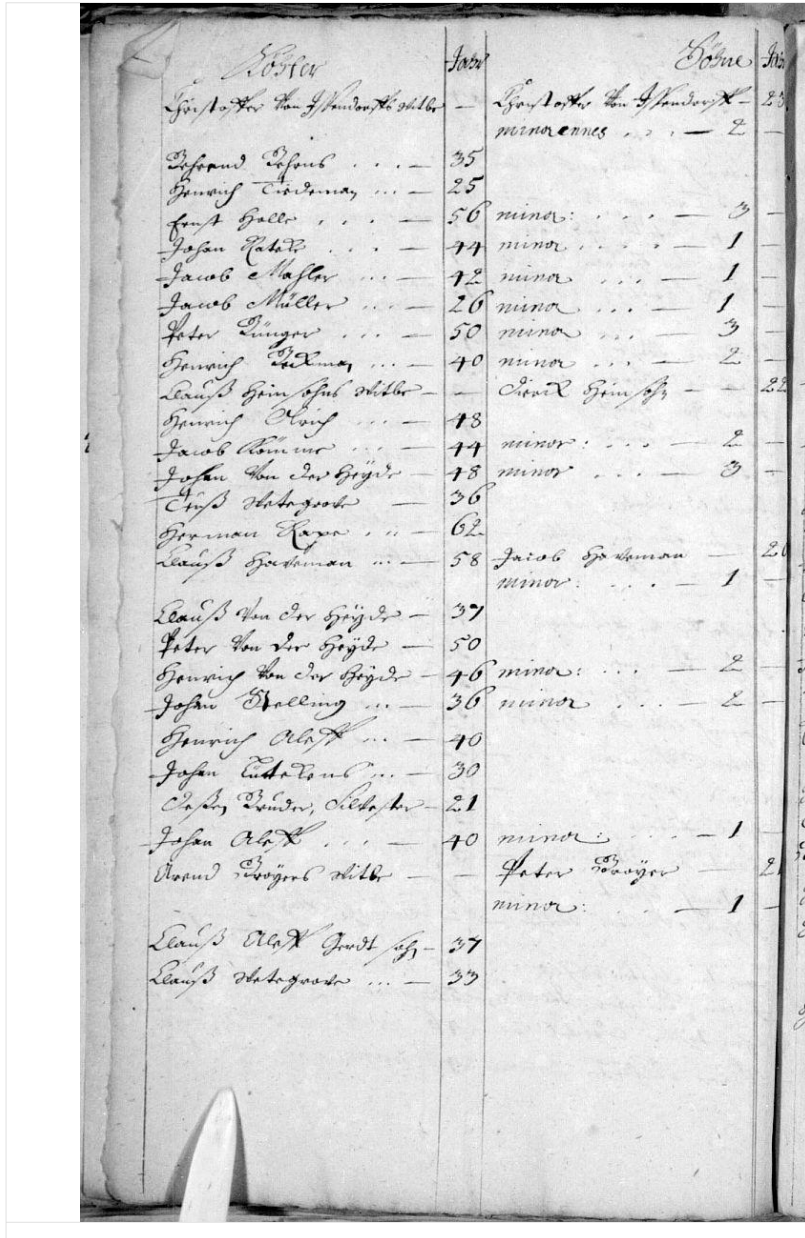 Köster Jahr Söhne Jahr
Christoffer Von Issendorffs Witbe — Christoffer Von Issendorff — 23
minorennes . . . — 2 —
Behrend Behrens . . . — 35
Henrich Tiedeman ... — 25
Ernst Holle . . . — 56 minor: . . . — 3 —
Johan . . . — 44 minor . . . . — 1 —
Jacob Mahler ... — 42 minor ... — 1 —
Jacob Müller ... — 26 minor ... — 1 —
Peter Bünger ... — 50 minor ... — 3 —
Henrich Beckman ... — 40 minor ... — 2 —
Clauß Heinsohns Witbe — — Dierck Heinsohn — 22
Henrich Olrich ... — 48
Jacob ... — 44 minor: . . . — 2 —
Johan Von der Heyde — 48 minor . . . — 3 —
Wetegrove — 36
Herman Rape . .. — 62
Clauß Haveman ... — 58 Jacob Haveman — 20
minor: . . . — 1 —
Clauß Von der Heÿde — 37
Peter Von der Heÿde — 50
Henrich Von der Heyde — 46 minor: . . . — 2 —
Johan Stelling ... — 36 minor . . . — 2 —
Henrich Aleff ... — 40
Johan ... — 30
Deßen Bruder, Silvester — 21
Johan Aleff ... — 40 minor: . . . — 1 —
Arend Broyers Witbe — — Peter Broyer — 21
minor: . . . — 1 —
Clauß Aleff Gerdt sohn — 37
Clauß Wetegrove ... — 33